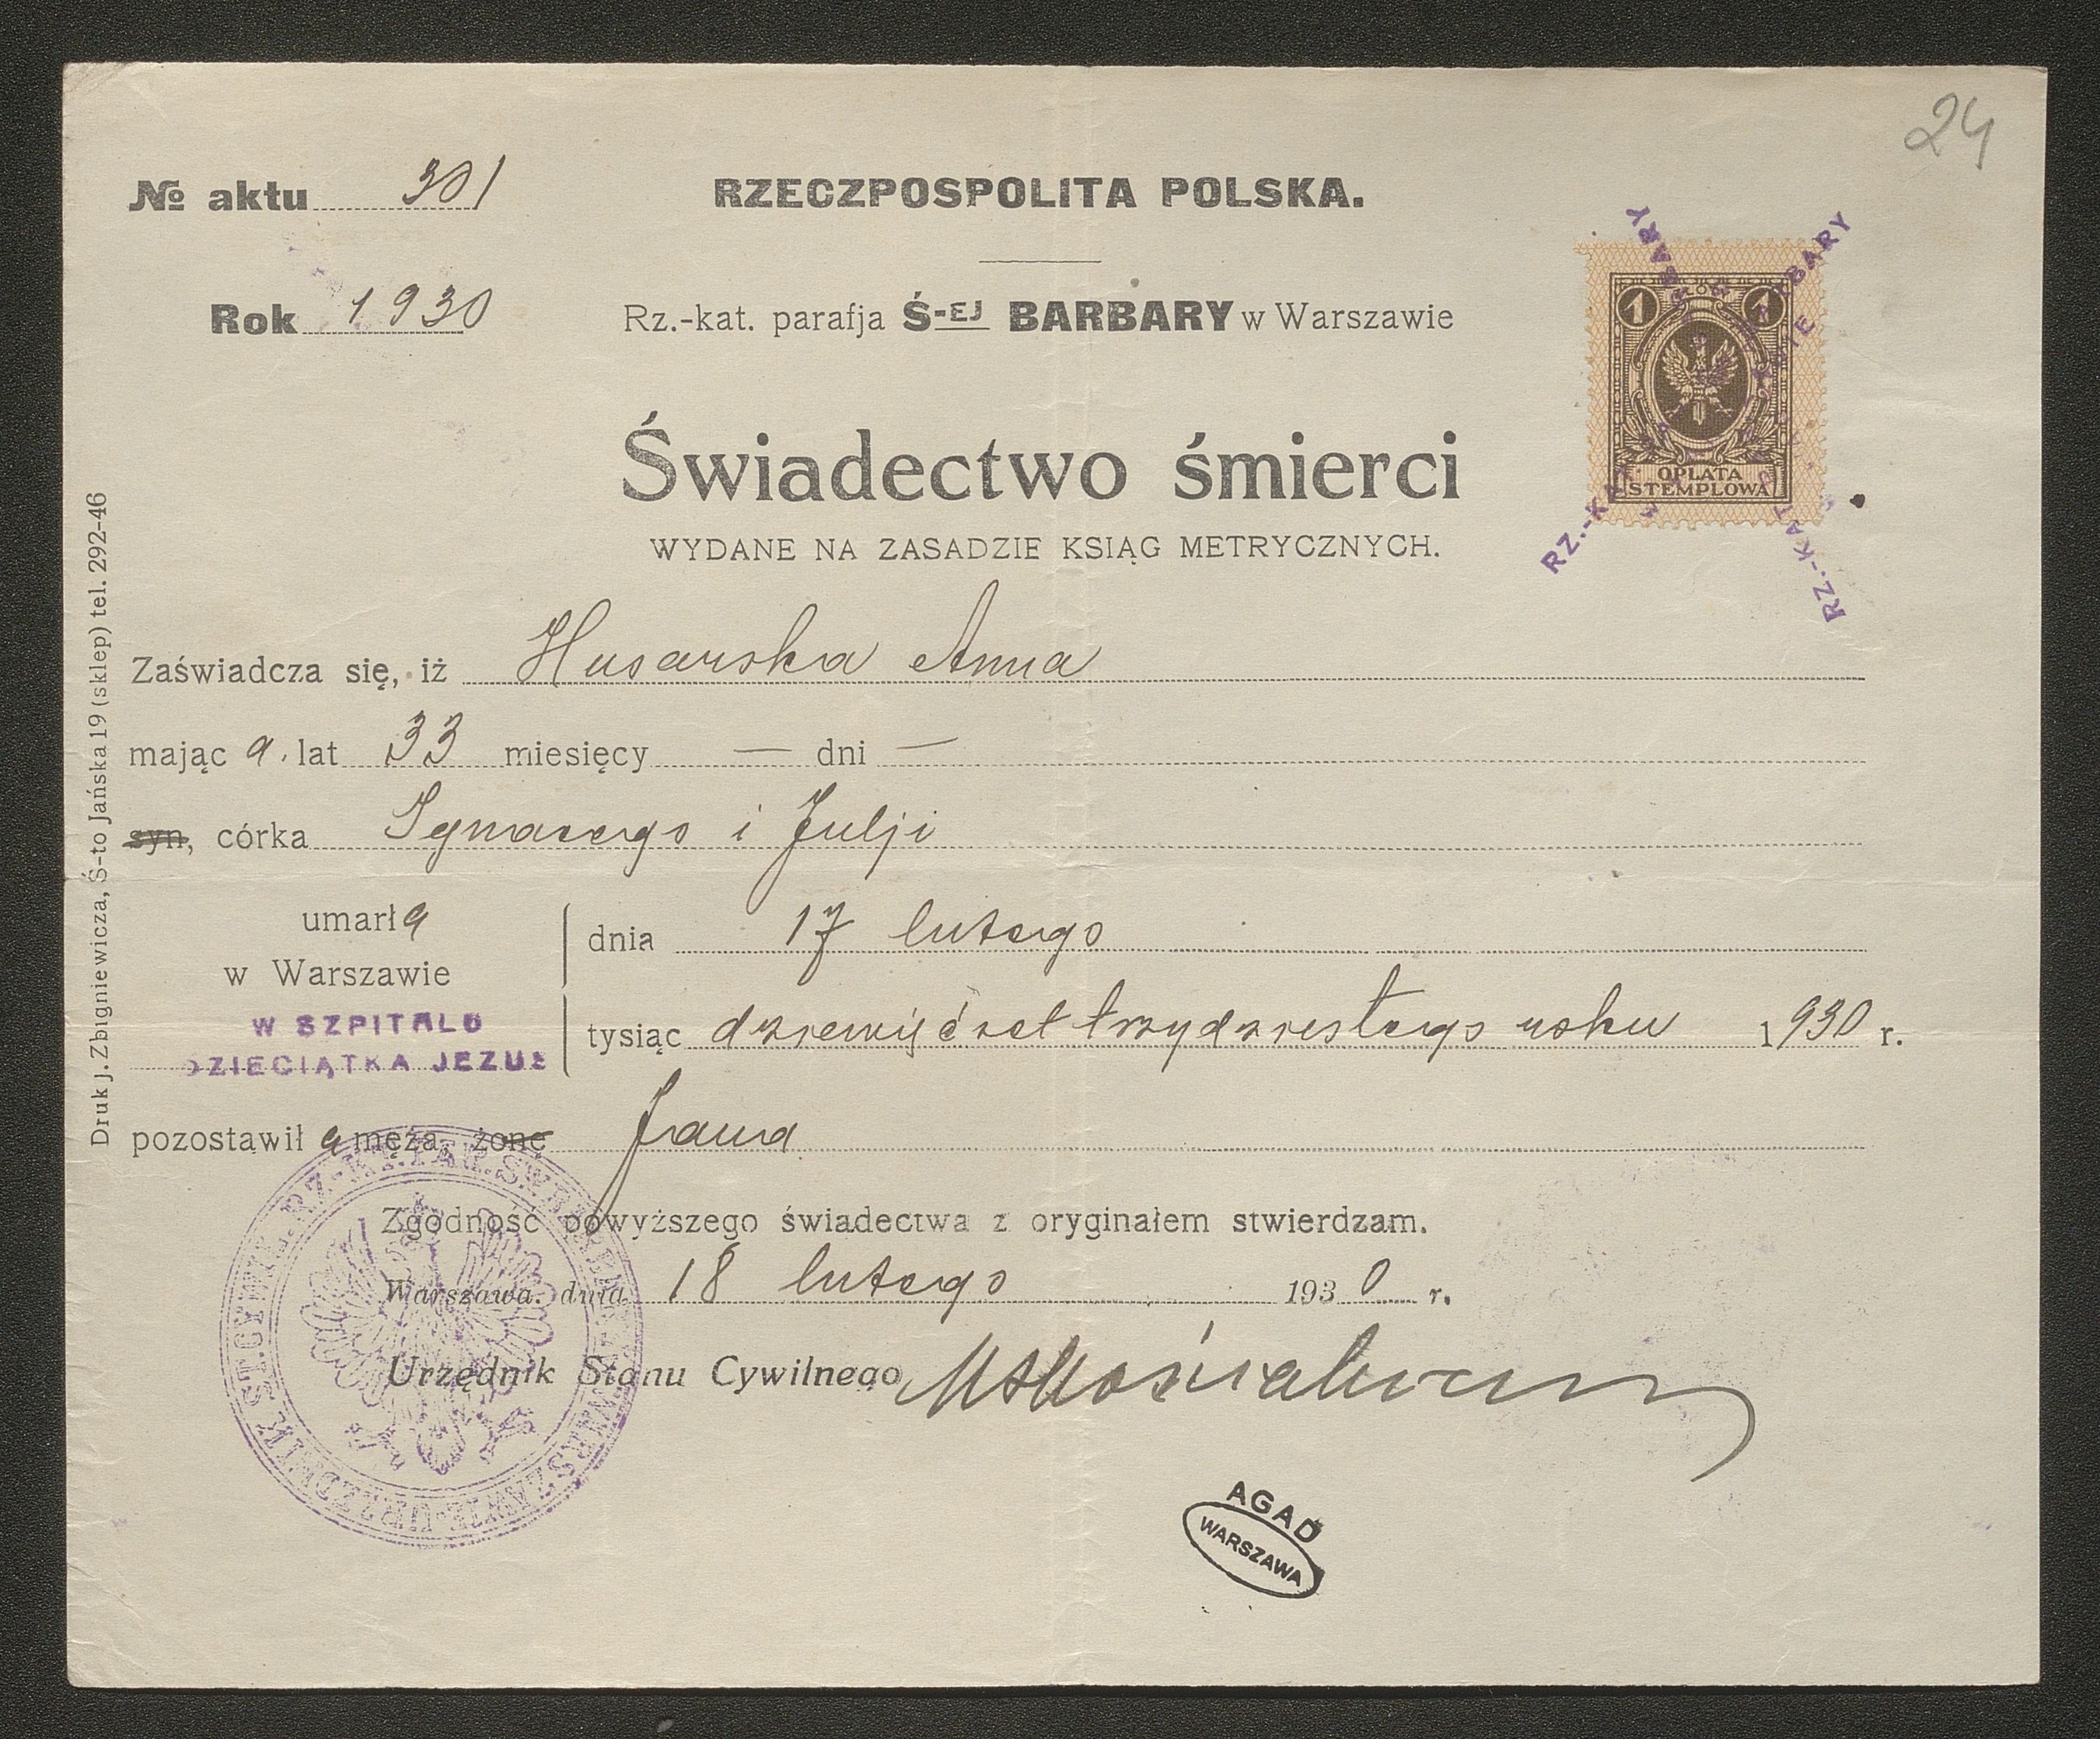 24
№ aktu 301
RZECZPOSPOLITA POLSKA.
Rok 1930
Rz.-kat. parafja Ś-EJ BARBARY w Warszawie
1 1
OPŁATA
STEMPLOWA
Świadectwo śmierci
WYDANE NA ZASADZIE KSIĄG METRYCZNYCH.
Zaświadcza się, iż Husarska Anna
mając a. lat 33 miesięcy — dni —
syn, córka Ignacego i Julji
umarła
w Warszawie
W SZPITALU
DZIECIĄTKA JEZUS
dnia 17 lutego
tysiąc dziewięćset trzydziestego roku 1930 r.
pozostawiła męża, żonę Jana
Zgodność powyższego świadectwa z oryginałem stwierdzam.
Warszawa, dnia 18 lutego 1930 r.
Urzędnik Stanu Cywilnego
AGAD
WARSZAWA
Druk j. Zbigniewicza, Ś-to Jańska 19 (sklep) tel. 292-46